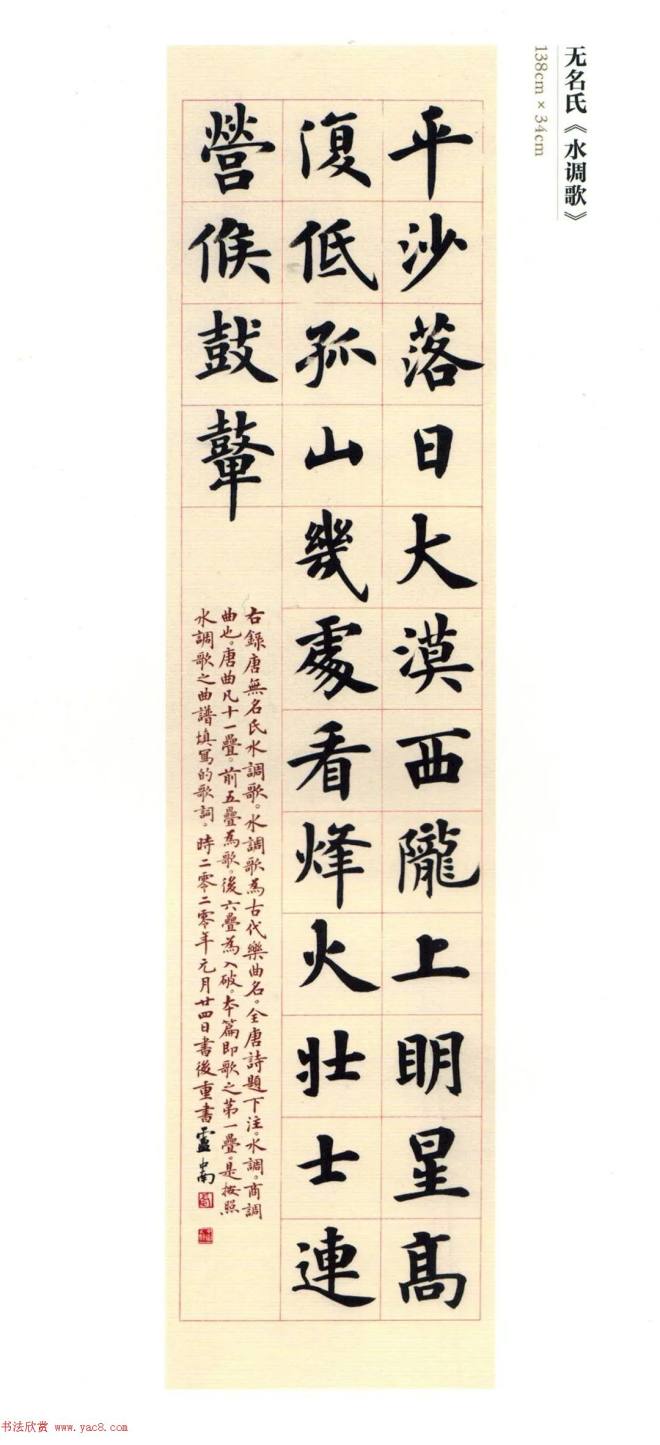 无名氏《水调歌》
138cm×34cm
平沙落日大漠西隴上明星高
復低孤山幾處看烽火壯士連
營候鼓鼙
右錄唐無名氏水調歌。水調歌為古代樂曲名。全唐詩題下注。水調。商調
曲也。唐曲凡十一疊。前五疊為歌。後六疊為入破。本篇即歌之第一疊。是按照
水調歌之曲譜填寫的歌詞。時二零二零年元月廿四日書後重書盧中南
书法欣赏 www.yac8.com